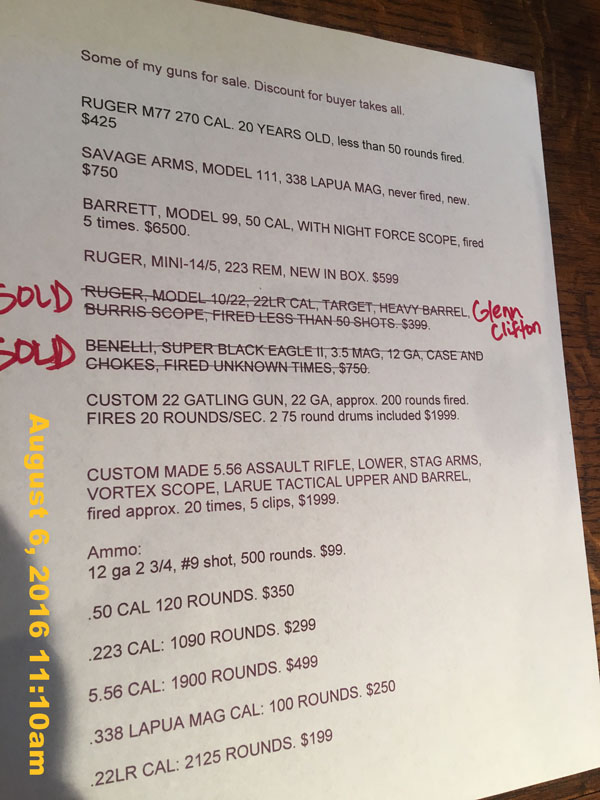 Some of my guns for sale. Discount for buyer takes all.
RUGER M77 270 CAL. 20 YEARS OLD, less than 50 rounds fired.
$425
SAVAGE ARMS, MODEL 111, 338 LAPUA MAG, never fired, new.
$750
BARRETT, MODEL 99, 50 CAL, WITH NIGHT FORCE SCOPE, fired
5 times. $6500.
RUGER, MINI-14/5, 223 REM, NEW IN BOX. $599
SOLD RUGER, MODEL 10/22, 22LR CAL, TARGET, HEAVY BARREL, Glenn
BURRIS SCOPE, FIRED LESS THAN 50 SHOTS. $399. Clifton
SOLD BENELLI, SUPER BLACK EAGLE II, 3.5 MAG, 12 GA, CASE AND
CHOKES, FIRED UNKNOWN TIMES, $750.
CUSTOM 22 GATLING GUN, 22 GA, approx. 200 rounds fired.
FIRES 20 ROUNDS/SEC. 2 75 round drums included $1999.
CUSTOM MADE 5.56 ASSAULT RIFLE, LOWER, STAG ARMS,
VORTEX SCOPE, LARUE TACTICAL UPPER AND BARREL,
fired approx. 20 times, 5 clips, $1999.
Ammo:
12 ga 2 3/4, #9 shot, 500 rounds. $99.
.50 CAL 120 ROUNDS. $350
.223 CAL: 1090 ROUNDS. $299
5.56 CAL: 1900 ROUNDS. $499
.338 LAPUA MAG CAL: 100 ROUNDS. $250
.22LR CAL: 2125 ROUNDS. $199
August 6, 2016 11:10am